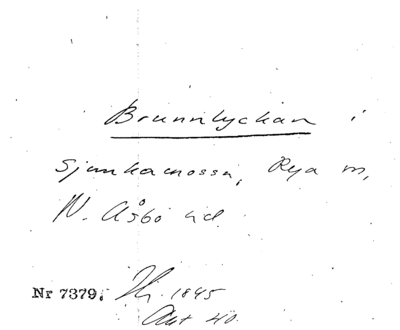 Brunnlyckan i
Sjunkamossen, Rya sn,
N. Åsbo hd.
Nr 7379. 1845
Akt 40.